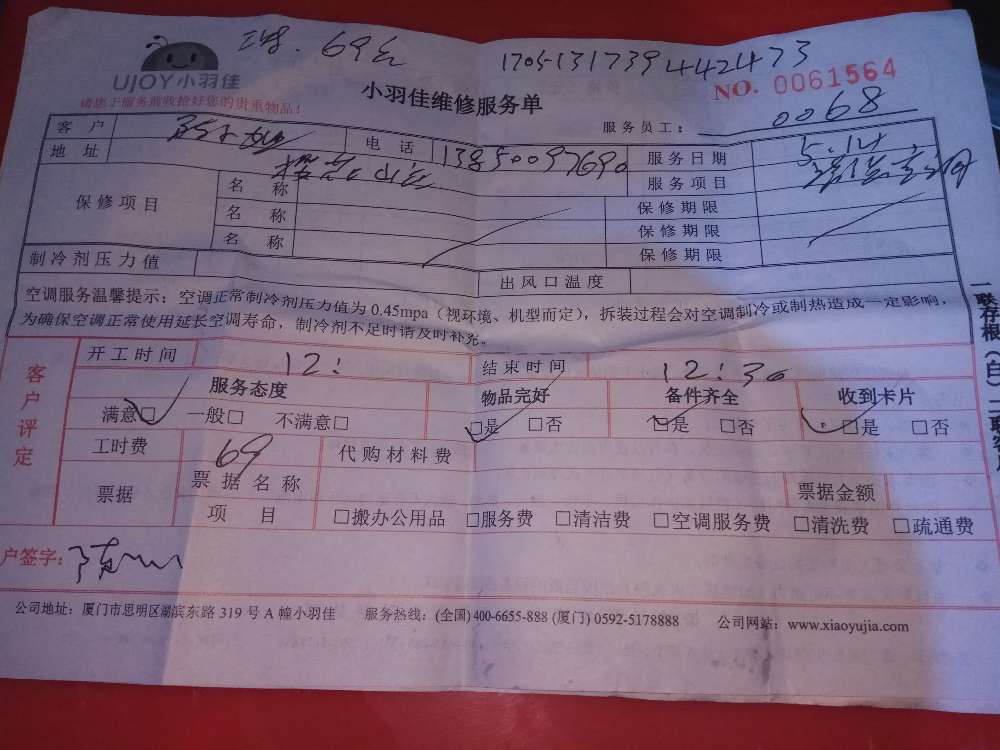 69元 1705131739442473
UJOY小羽佳
NO. 0061564
请您于服务前收拾好您的贵重物品！
小羽佳维修服务单
服务员工： 0068
客户 电话 13850097690 服务日期 5.14
地址 服务项目
保修项目 名称 保修期限
名称 保修期限
名称 保修期限
制冷剂压力值 出风口温度
空调服务温馨提示：空调正常制冷剂压力值为 0.45mpa（视环境、机型而定），拆装过程会对空调制冷或制热造成一定影响，
为确保空调正常使用延长空调寿命，制冷剂不足时请及时补充。
客户评定
开工时间 12： 结束时间 12：30
服务态度 物品完好 备件齐全 收到卡片
满意□ 一般□ 不满意□ □是 □否 □是 □否 □是 □否
工时费 69 代购材料费
票据 票据名称 票据金额
项目 □搬办公用品 □服务费 □清洁费 □空调服务费 □清洗费 □疏通费
户签字：
公司地址：厦门市思明区湖滨东路 319 号 A 幢小羽佳 服务热线：(全国) 400-6655-888 (厦门) 0592-5178888 公司网站：www.xiaoyujia.com
一联存根（白）二联